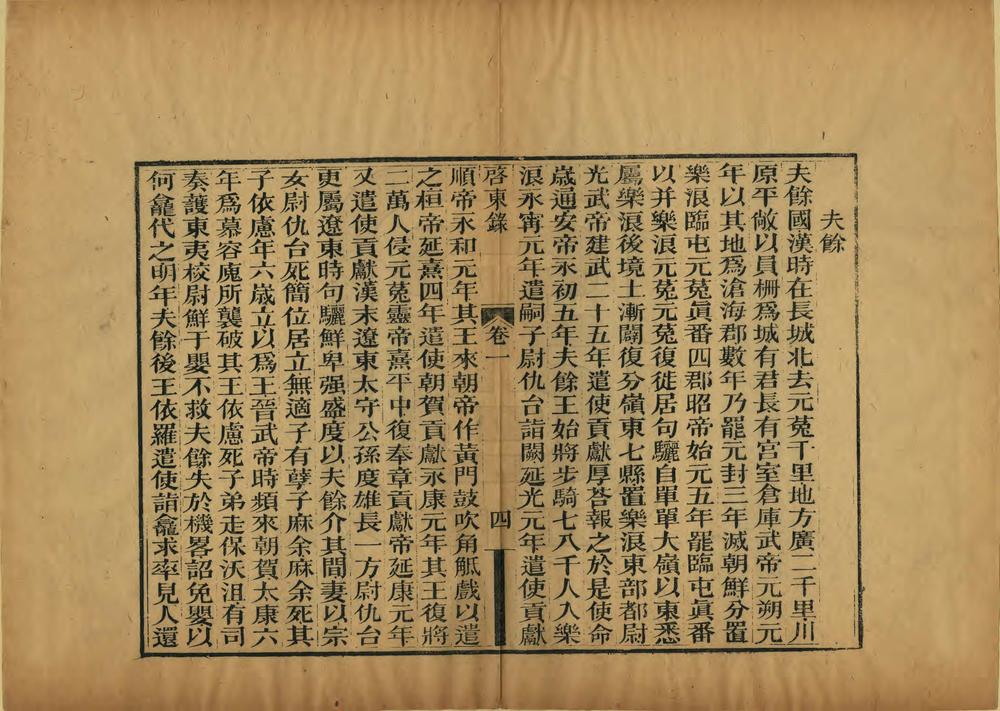 夫餘
夫餘國漢時在長城北去元菟千里地方廣二千里川
原平敞以員柵爲城有君長有宮室倉庫武帝元朔元
年以其地爲滄海郡數年乃罷元封三年滅朝鮮分置
樂浪臨屯元菟眞番四郡昭帝始元五年罷臨屯眞番
以并樂浪元菟元菟復徙居句驪自單單大嶺以東悉
屬樂浪後境土漸闢復分嶺東七縣置樂浪東部都尉
光武帝建武二十五年遣使貢獻厚荅報之於是使命
歲通安帝永初五年夫餘王始將步騎七八千人入樂
浪永甯元年遣嗣子尉仇台詣闕延光元年遣使貢獻
啓東錄
卷一
四
順帝永和元年其王來朝帝作黃門鼓吹角觝戲以遣
之桓帝延熹四年遣使朝賀貢獻永康元年其王復將
二萬人侵元菟靈帝熹平中復奉章貢獻帝延康元年
又遣使貢獻漢末遼東太守公孫度雄長一方尉仇台
更屬遼東時句驪鮮卑强盛度以夫餘介其間妻以宗
女尉仇台死簡位居立無適子有孽子麻余麻余死其
子依慮年六歲立以爲王晉武帝時頻來朝賀太康六
年爲慕容廆所襲破其王依慮死子弟走保沃沮有司
奏護東夷校尉鮮于嬰不救夫餘失於機畧詔免嬰以
何龕代之明年夫餘後王依羅遣使詣龕求率見人還